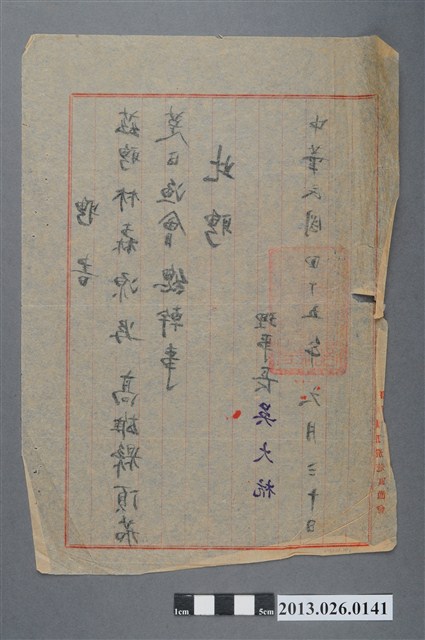 聘書
茲聘林森源為高雄縣頂茄
萣區漁會總幹事
此聘
理事長 吳大
中華民國四十五年六月三十日
1cm 5cm
2013.026.0141